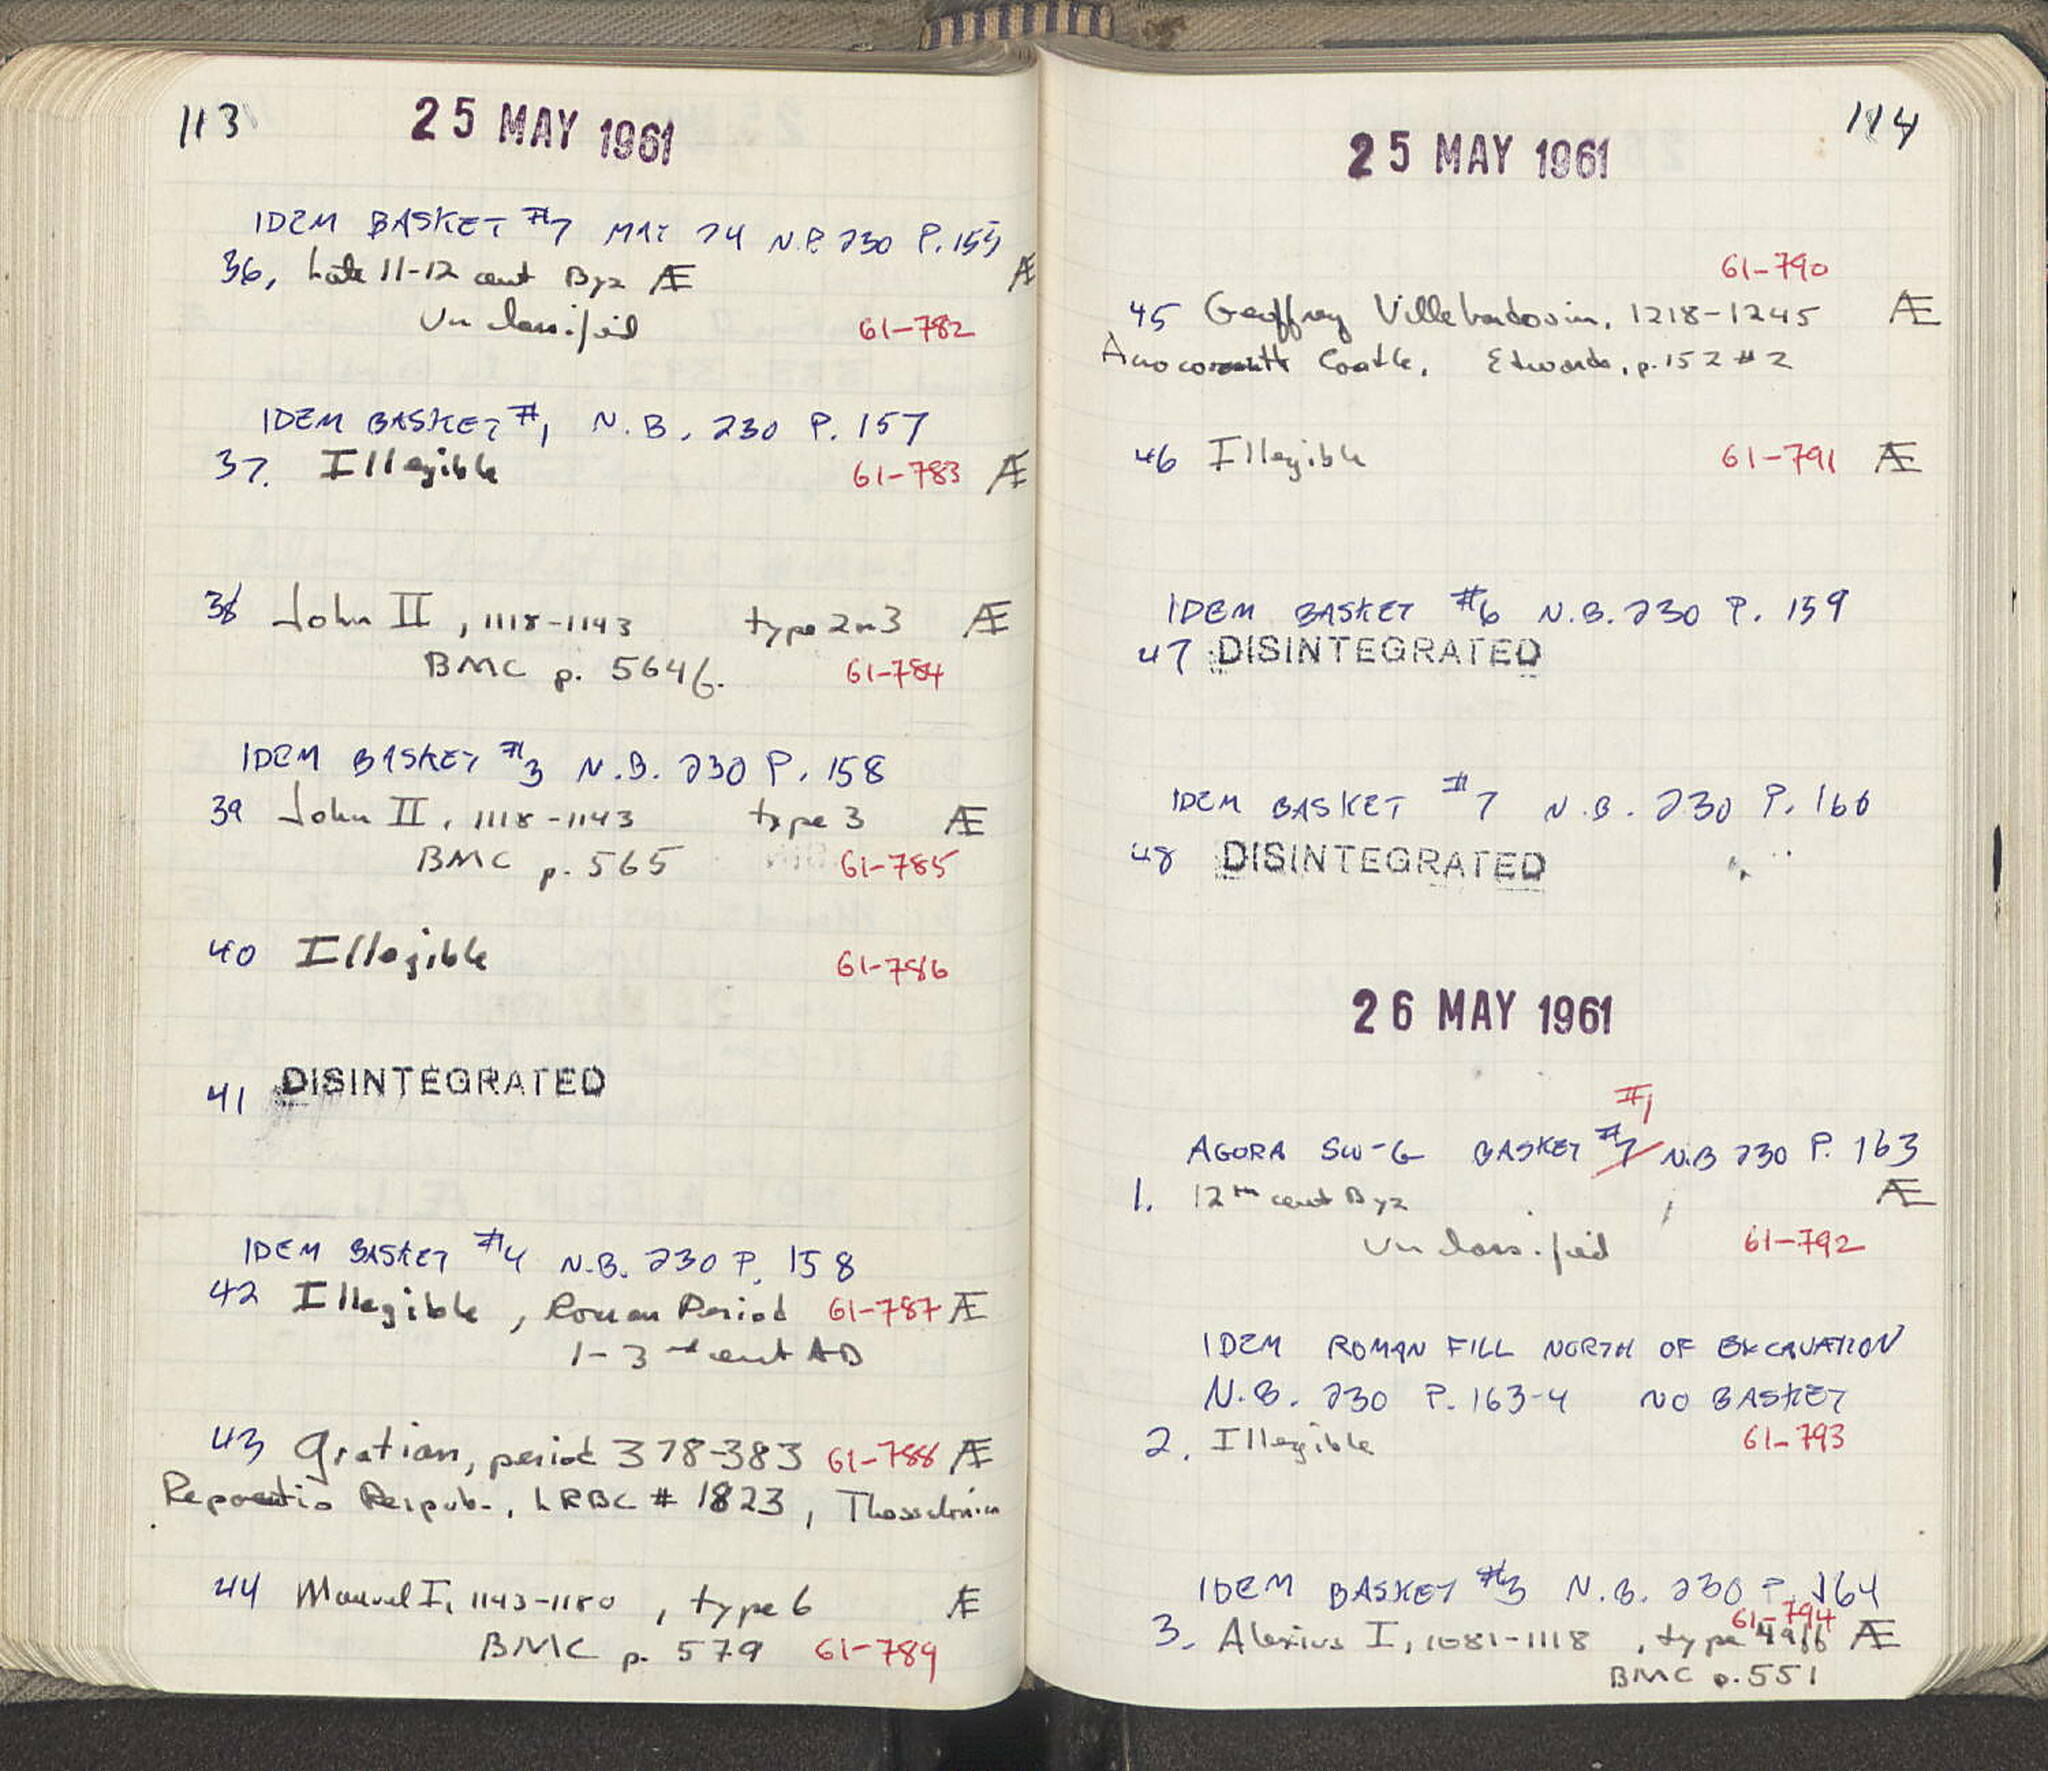 113
25 MAY 1961
IDEM BASKET #7 MAY 24 N.B. 230 P. 155
36, Late 11-12 cent Byz Æ Æ
Unclassified 61-782
IDEM BASKET #1 N.B. 230 P. 157
37. Illegible 61-783 Æ
38 John II, 1118-1143 type 2 or 3 Æ
BMC p. 564 f. 61-784
IDEM BASKET #3 N.B. 230 P. 158
39 John II, 1118-1143 type 3 Æ
BMC p. 565 61-785
40 Illegible 61-786
41 DISINTEGRATED
IDEM BASKET #4 N.B. 230 P. 158
42 Illegible, Roman Period 61-787 Æ
1-3rd cent AD
43 Gratian, period 378-383 61-788 Æ
Reparatio Reipub., LRBC # 1823, Thessalonica
44 Manuel I, 1143-1180, type 6 Æ
BMC p. 579 61-789
114
25 MAY 1961
61-790
45 Geoffrey Villehardouin, 1218-1245 Æ
Acrocorinth Castle, Edwards, p. 152 #2
46 Illegible 61-791 Æ
IDEM BASKET #6 N.B. 230 P. 159
47 DISINTEGRATED
IDEM BASKET #7 N.B. 230 P. 160
48 DISINTEGRATED
26 MAY 1961
#1
AGORA SW-G BASKET #7 N.B 230 P. 163
1. 12th cent Byz Æ
Unclassified 61-792
IDEM ROMAN FILL NORTH OF EXCAVATION
N.B. 230 P. 163-4 NO BASKET
2. Illegible 61-793
IDEM BASKET #3 N.B. 230 P. 164
61-794
3. Alexius I, 1081-1118, type Æ
BMC p. 551